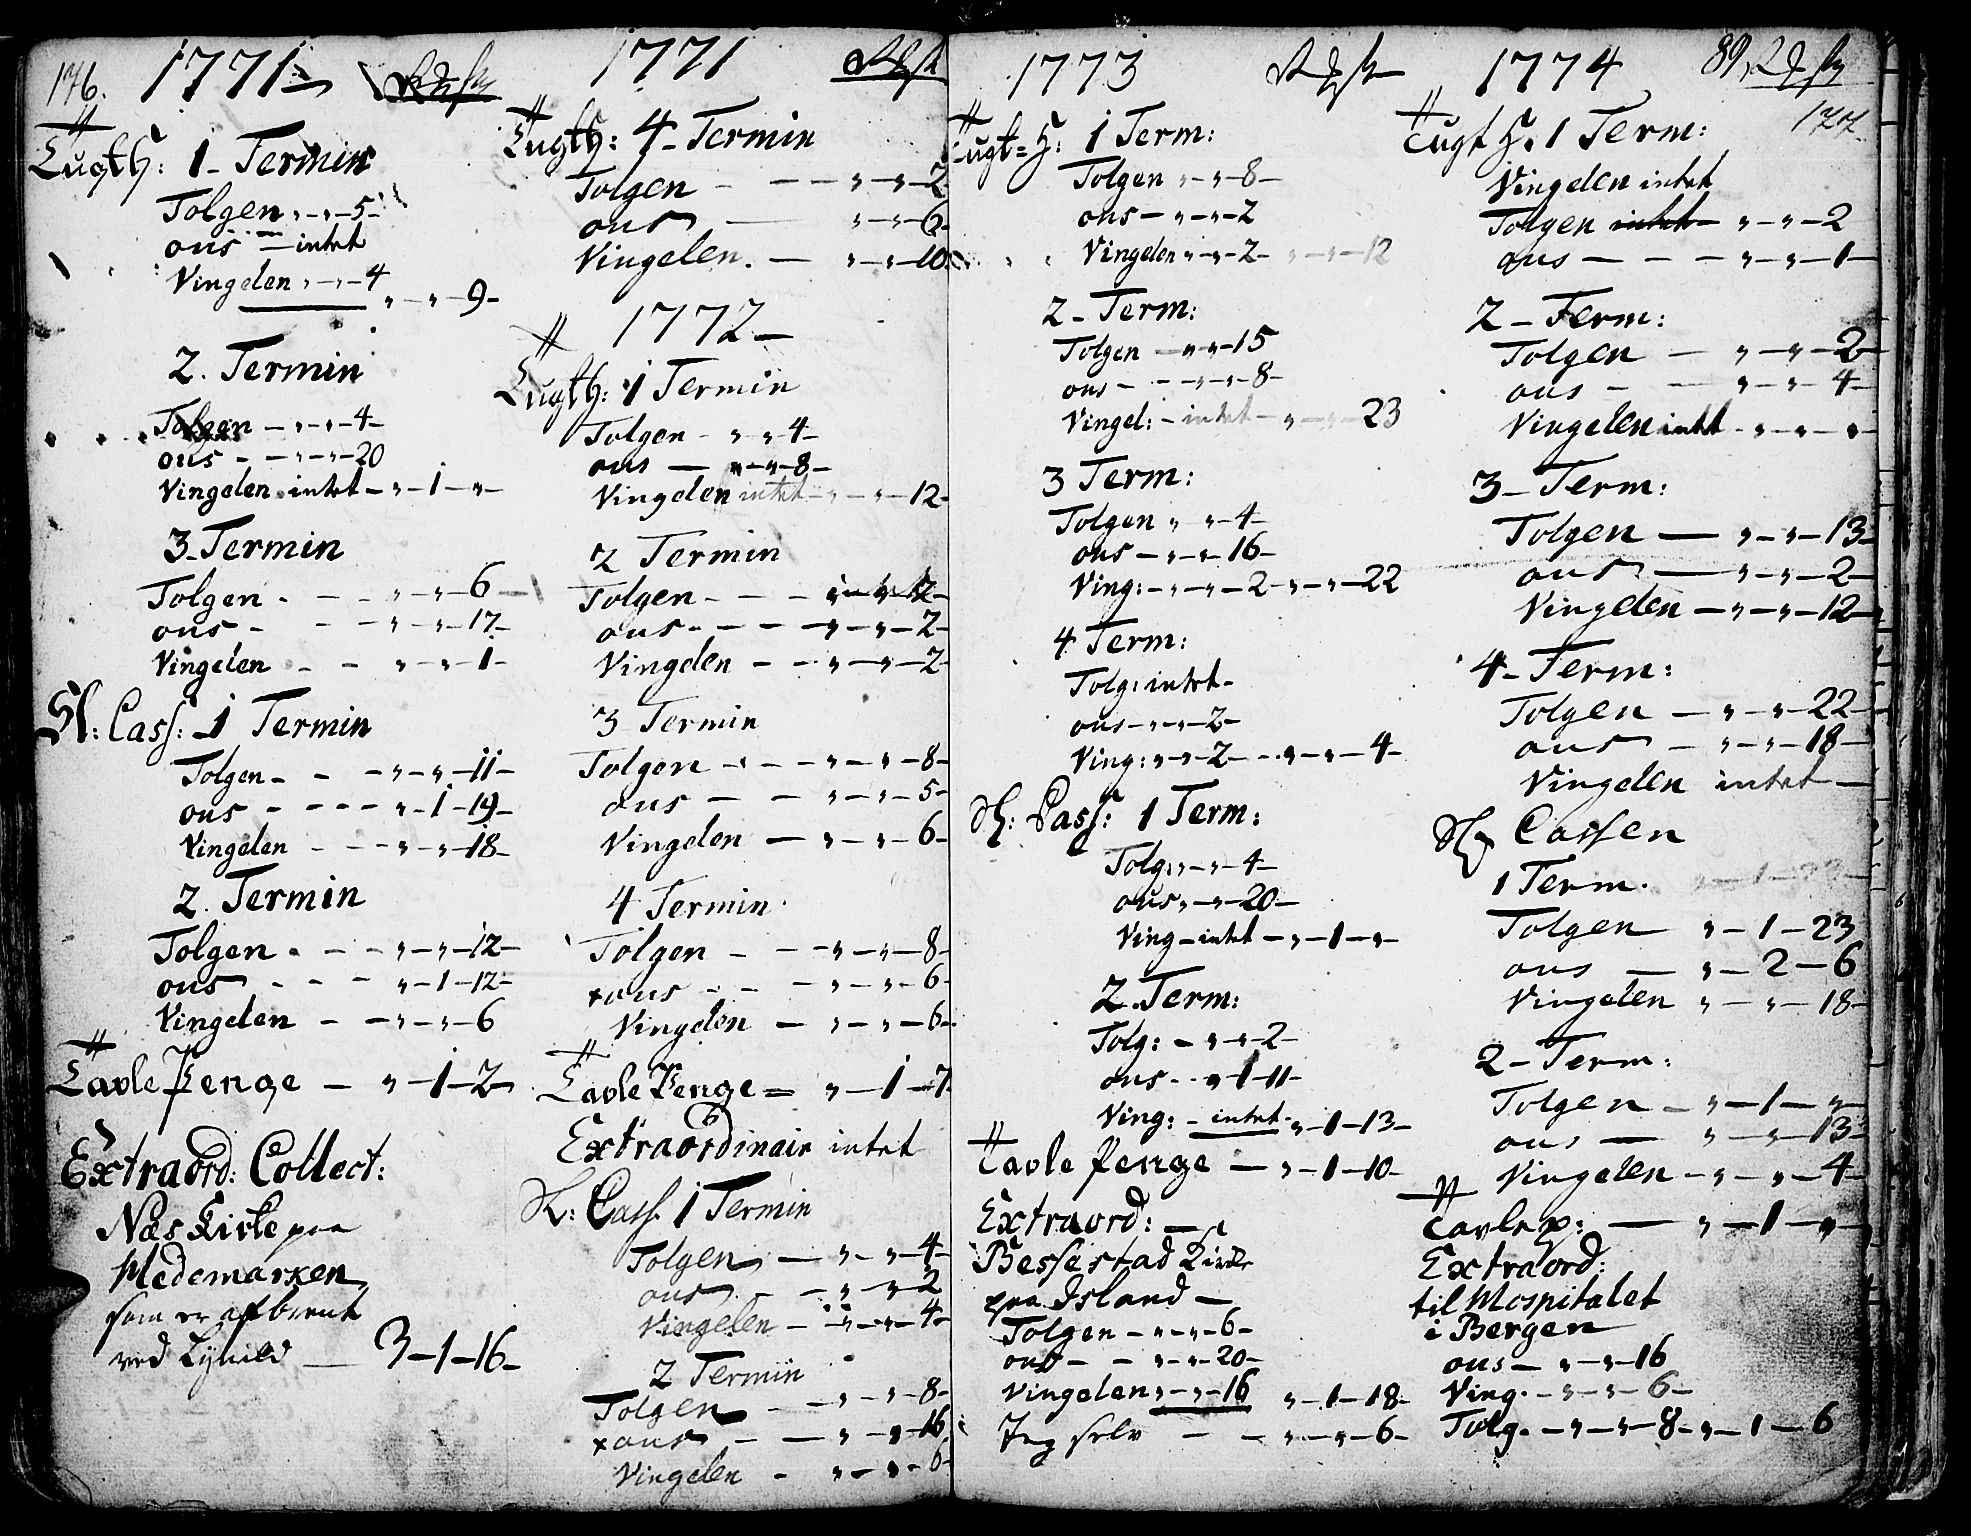 176. 1771
Tugth: 1 - Termin
Tolgen „ - „ - 5 -
ous - intet
Vingelen „ - „ - 4
„ - „ - 9 -
2. Termin
Tolgen - „ - „ - 4 -
ous - - „ - „ - 20
Vingelen intet - „ - 1 - „ -
3 - Termin
Tolgen - - - „ - „ - 6 -
ous - - - „ - „ - 17 -
Vingelen - - „ - „ - 1 -
Sk: Cass: 1 Termin
Tolgen - - - „ - „ - 11 -
ous - - - - „ - 1 - 19 -
Vingelen - - - „ - „ - 18 -
2. Termin
Tolgen - - - „ - „ - 12 -
ous - - - „ - 1 - 12 -
Vingelen - - „ - „ - 6
Tavle Penge - „ - 1 - 2
Extraord: Collect:
Næs Kirke paa
Hedemarken
som er afbrent
ved Lynild - 3 - 1 - 16 -
1771
Tugth: 4 - Termin
Tolgen - - - „ - „ - 2
ous - „ - „ - 6
Vingelen. - „ - „ - 10
1772 -
Tugth: 1 Termin
Tolgen - „ - „ - 4 -
ous - „ - „ - 8 -
Vingelen intet - „ - „ - 12 -
2 Termin
Tolgen - - -
ous - - - - „ - „ - 2 -
Vingelen - - „ - „ - 2 -
3 Termin
Tolgen - - - „ - „ - 8 -
ous - - „ - „ - 5 -
Vingelen - „ - „ - 6 -
4 Termin
Tolgen - - - „ - „ - 8 -
ous - - - „ - „ - 6 -
Vingelen - „ - „ - 6 -
Tavle Penge = „ - 1 - 7
Extraordinair intet
Sk: Cass. 1 Termin
Tolgen - „ - „ - 4 -
ous - „ - „ - 2
Vingelen - „ - „ - 4 -
2 Termin
Tolgen - „ - „ - 8 -
x ous - - „ - „ - 16
Vingelen - „ - „ - 6 -
1773
Tugt = H: 1 Term:
Tolgen „ - „ - 8 -
ous - „ - „ - 2
Vingelen „ - „ - 2 - „ - „ - 12
2 - Term:
Tolgen - „ - „ - 15
ous - - „ - „ - 8 -
Vingel: - intet - „ - „ - 23
3 Term:
Tolgen „ „ - 4 -
ous - „ - „ - 16 -
Ving: - „ - „ - 2 - „ - „ - 22
4 Term:
Tolg: intet -
ous - „ - „ - 2 -
Ving: „ - „ - 2 - - „ - „ - 4 -
Sk: Cass: 1 Term:
Tolg: „ - „ - 4 -
ous „ - „ - 20 -
Ving - intet - „ - 1 - „ -
2. Term:
Tolg: - „ - „ - 2 -
ous - - „ - 1 - 11 -
Ving: - intet - „ - 1 - 13 -
Tavle Penge - „ - 1 - 10 -
Extraord: -
Bessestad Kirke
paa Island -
Tolgen - „ - „ - 6 -
ous - - „ - „ - 20 -
Vingelen „ - „ - 16 „ - 1 - 18 -
Jeg selv - - „ - „ - 6 -
1774 89
177
Tugt H. 1 Term:
Vingelen intet
Tolgen intet „ - „ - 2
ous - - - „ - „ - 1 -
2 - Term:
Tolgen - „ - „ - 2 -
ous - - „ - „ - 4 -
Vingelen intet - „ - „ - „
3 - Term:
Tolgen - „ - „ - 13 -
ous - „ - „ - 2 -
Vingelen - „ - „ - 12 -
4 - Term:
Tolgen - „ - „ - 22 -
ous - „ - „ - 18 -
Vingelen intet -
Cassen
1 Term.
Tolgen „ - 1 - 23
ous - „ - 2 - 6
Vingelen „ - „ - 18 -
2 - Term:
Tolgen - „ - 1 - „ -
ous - „ - „ - 13
Vingelen - „ - „ - 4 -
Tavle p: - „ - 1 - „ -
Extraord:
til Hospitalet
i Bergen
ous - „ - „ - 16
Ving. - „ - „ - 6 -
Tolg. - „ - „ - 8 - „ - 1 - 6